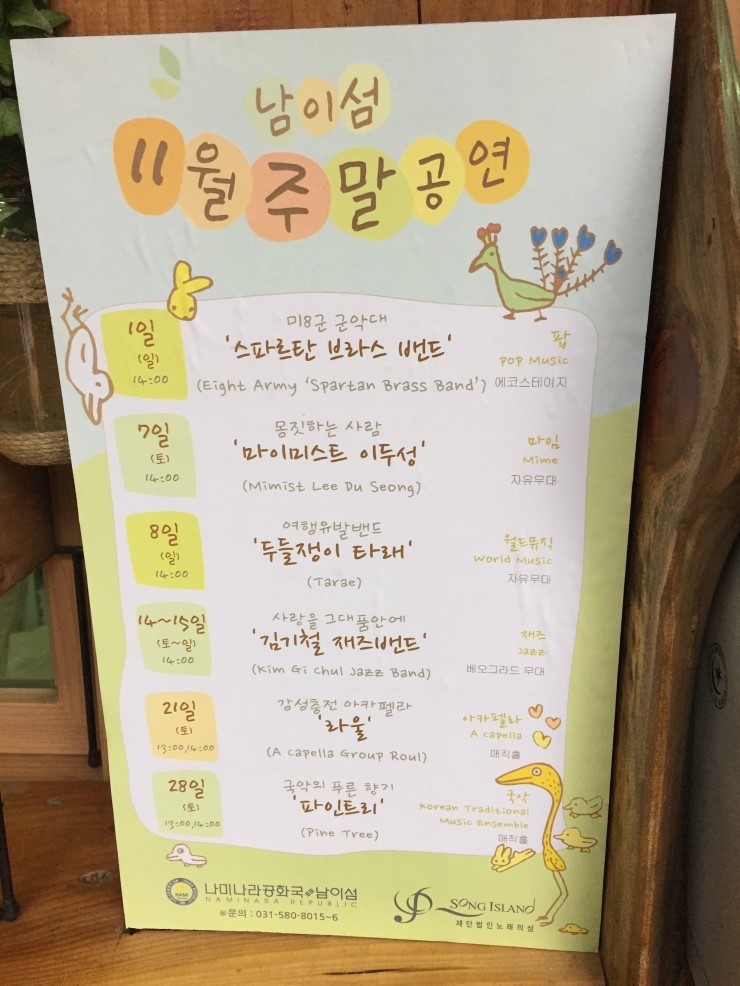 남이섬
11월 주말 공연
1일
(일)
14:00
미8군 군악대
'스파르탄 브라스 밴드'
(Eight Army 'Spartan Brass Band')
팝
POP Music
에코스테이지
7일
(토)
14:00
몸짓하는 사람
'마이미스트 이두성'
(Mimist Lee Du Seong)
마임
Mime
자유무대
8일
(일)
14:00
여행유발밴드
'두들쟁이 타래'
(Tarae)
월드뮤직
World Music
자유무대
14~15일
(토~일)
14:00
사랑을 그대품안에
'김기철 재즈밴드'
(Kim Gi Chul Jazz Band)
재즈
Jazz
베오그라드 무대
21일
(토)
13:00,14:00
감성충전 아카펠라
'라울'
(A Capella Group Roul)
아카펠라
A Capella
매직홀
28일
(토)
13:00,14:00
국악의 푸른 향기
'파인트리'
(Pine Tree)
국악
Korean Traditional
Music Ensemble
매직홀
나미나라공화국 남이섬
NAMINARA REPUBLIC
※문의 : 031-580-8015~6
SONG ISLAND
재단법인노래의섬